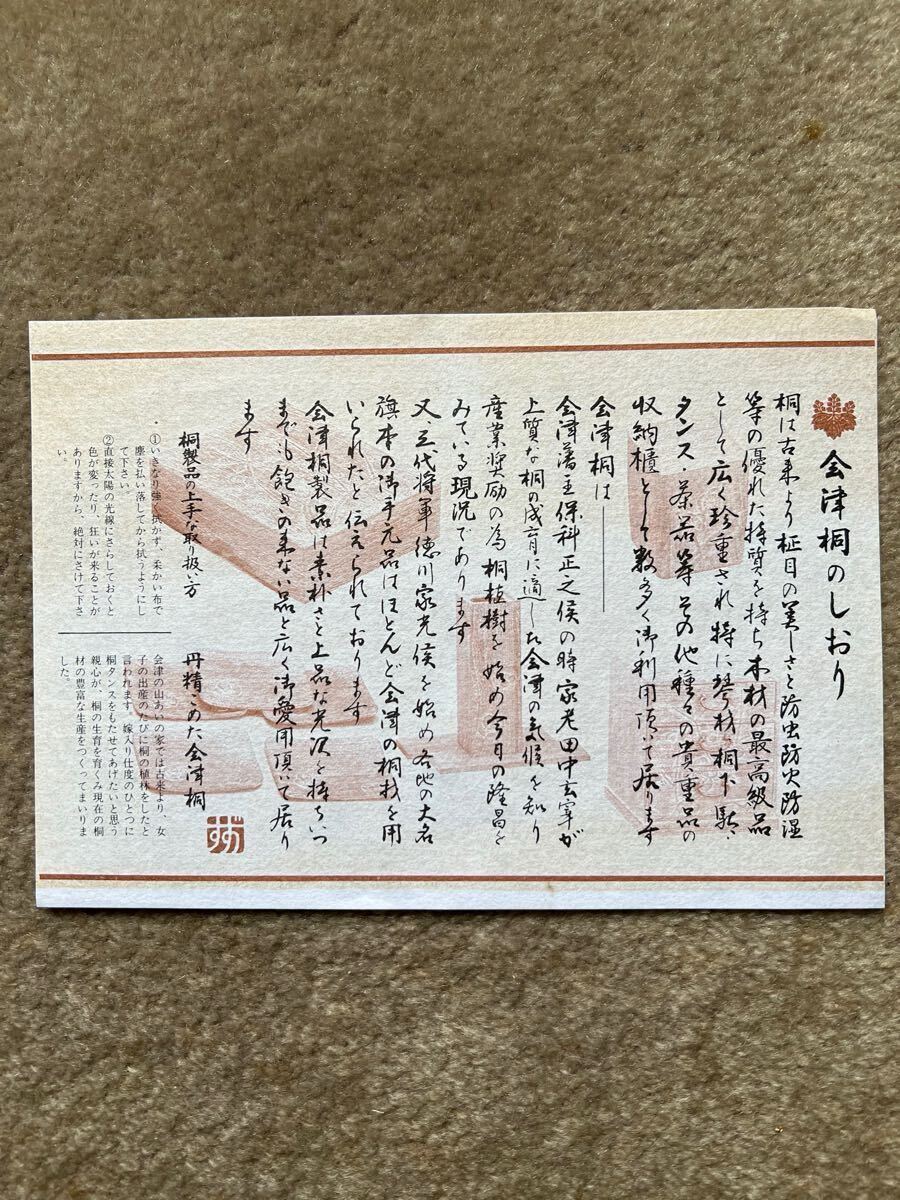 会津桐のしおり
桐は古来より柾目の美しさと防虫防火防湿
等の優れた特質を持ち木材の最高級品
として広く珍重され特に琴材、桐下駄、
タンス・茶器等その他種々の貴重品の
収納櫃として数多く御利用頂いて居ります
会津桐は
会津藩主保科正之侯の時家老田中玄宰が
上質な桐の成育に適した会津の気候を知り
産業奨励の為桐植樹を始め今日の隆昌を
みている現況であります
又三代将軍徳川家光侯を始め各地の大名
旗本の御手元品はほとんど会津の桐材を用
いられたと伝えられております
会津桐製品は素朴さと上品な光沢を持ちいつ
までも飽きの来ない品と広く御愛用頂いて居り
ます
桐製品の上手な取り扱い方
①いきなり強く拭かず、柔かい布で
塵を払い落してから拭うようにし
て下さい。
②直接太陽の光線にさらしておくと
色が変ったり、狂いが来ることが
ありますから、絶対にさけて下さ
い。
丹精こめた会津桐
会津の山あいの家では古来より、女
子の出産のたびに桐の植林をしたと
言われます。嫁入り仕度のひとつに
桐タンスをもたせてあげたいと思う
親心が、桐の生育を育くみ現在の桐
材の豊富な生産をつくってまいりま
した。